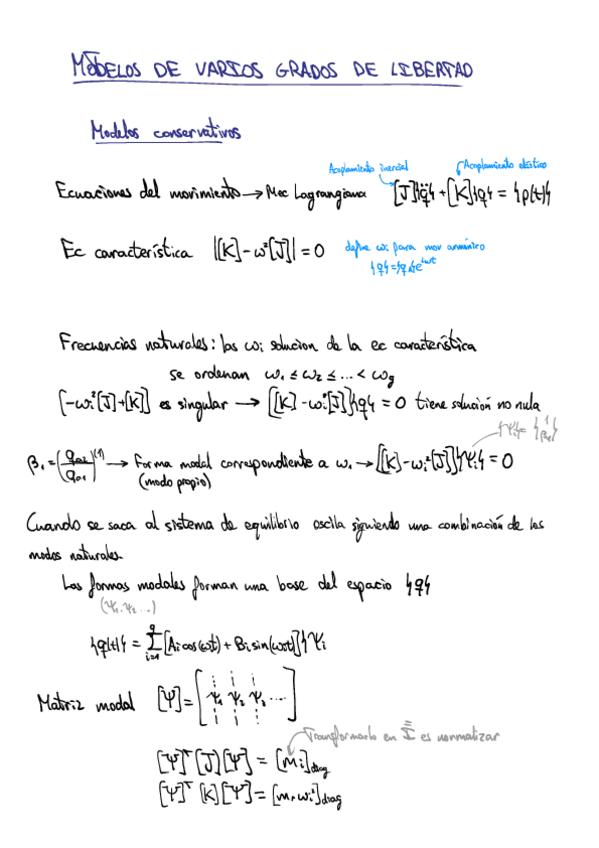 MODELOS DE VARIOS GRADOS DE LIBERTAD
Modelos conservativos
Acoplamiento inercial Acoplamiento elástico
Ecuaciones del movimiento → Mec Lagrangiana [J]{q̈} + [K]{q} = {p(t)}
Ec característica |[K]-ω²[J]| = 0 define ωi para mov armónico
{q}={qa}e^iωt
Frecuencias naturales: las ωi solucion de la ec característica
se ordenan ω₁ ≤ ω₂ ≤ ... < ωg
[-ωi²[J]+[K]] es singular → [[K]-ωi²[J]]{q} = 0 tiene solución no nula
{Ψ}= {1 β}
β₁ = (qa2/qa1)^(1) → Forma modal correspondiente a ω₁ → [[K]-ωi²[J]]{Ψi} = 0
(modo propio)
Cuando se saca al sistema de equilibrio oscila siguiendo una combinación de los
modos naturales.
Las formas modales forman una base del espacio {q}
(Ψ₁, Ψ₂ ...)
{q(t)} = Σ i=1 g [Ai cos(ωt) + Bi sin(ωit)]{Ψi
Matriz modal [Ψ] = [Ψ₁ Ψ₂ Ψ₃ ...]
Transformarlo en I es normalizar
[Ψ]ᵀ [J][Ψ] = [mi]diag
[Ψ]ᵀ [K][Ψ] = [mi ωi²]diag